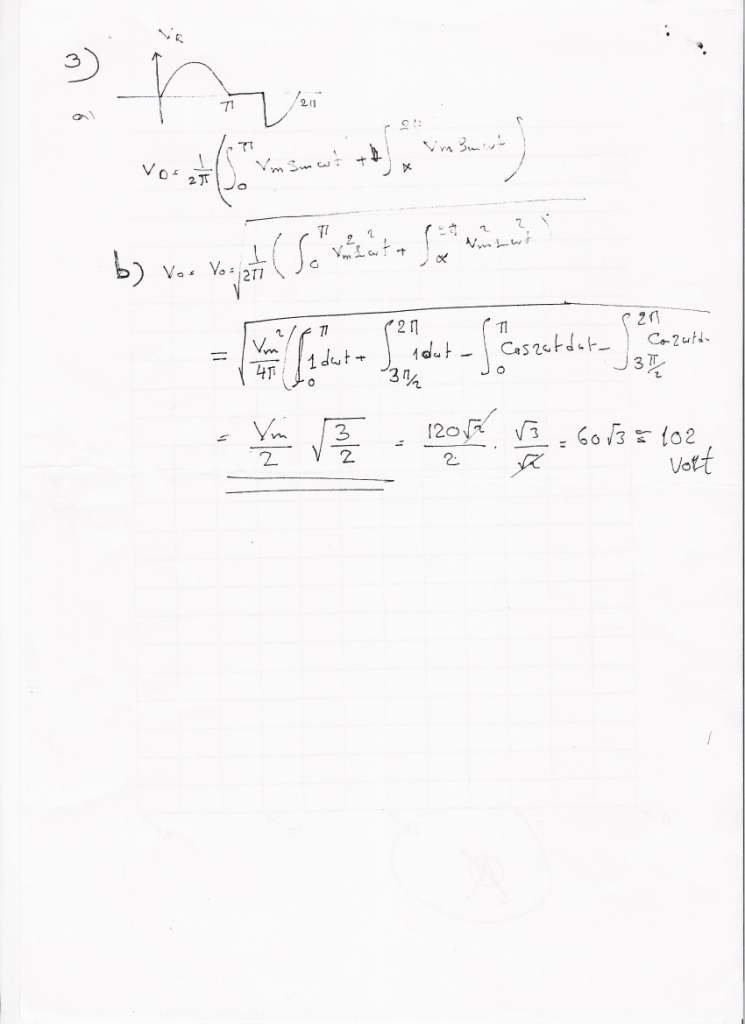 V_R
3)
π 2π
a)
V_o = 1/2π ( ∫_0^π V_m Sin ωt + ∫_α^2π V_m Sin ωt )
b) V_o = V_o = √( 1/2π ( ∫_0^π V_m^2 Sin^2 ωt + ∫_α^2π V_m^2 Sin^2 ωt ) )
= √( V_m^2/4π ( ∫_0^π 1 dωt + ∫_{3π/2}^{2π} 1 dωt - ∫_0^π Cos2ωt dωt - ∫_{3π/2}^{2π} Cos 2ωt d
= V_m/2 √(3/2) = 120√2/2 · √3/√2 = 60√3 ≅ 102
Volt